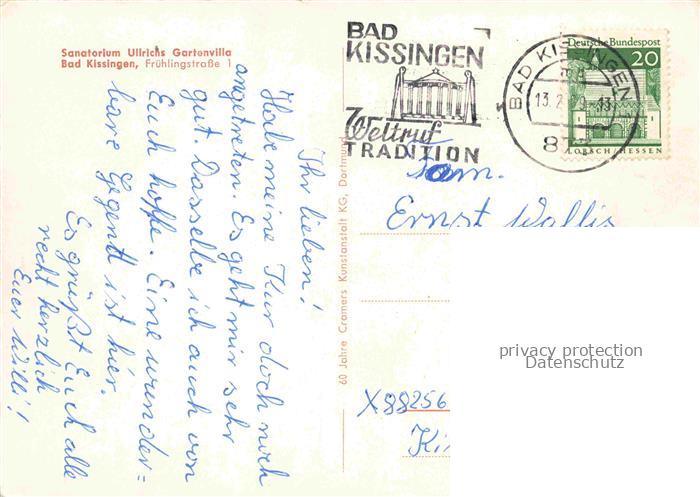 Sanatorium Ullrichs Gartenvilla
Bad Kissingen, Frühlingstraße 1
Ihr lieben!
Habe meine Kur doch noch
angetreten. Es geht mir sehr
gut. Dasselbe ich auch von
Euch hoffe. Eine wunder=
bare Gegend ist hier.
Es grüßt Euch alle
recht herzlich
Euer Willi!
60 Jahre Cramers Kunstanstalt KG, Dortmund
BAD
KISSINGEN
Weltruf
TRADITION
BAD KISSINGEN
13.2.
Deutsche Bundespost
20
LORSCH HESSEN
Fam.
Ernst Wallis
privacy protection
Datenschutz
X88256